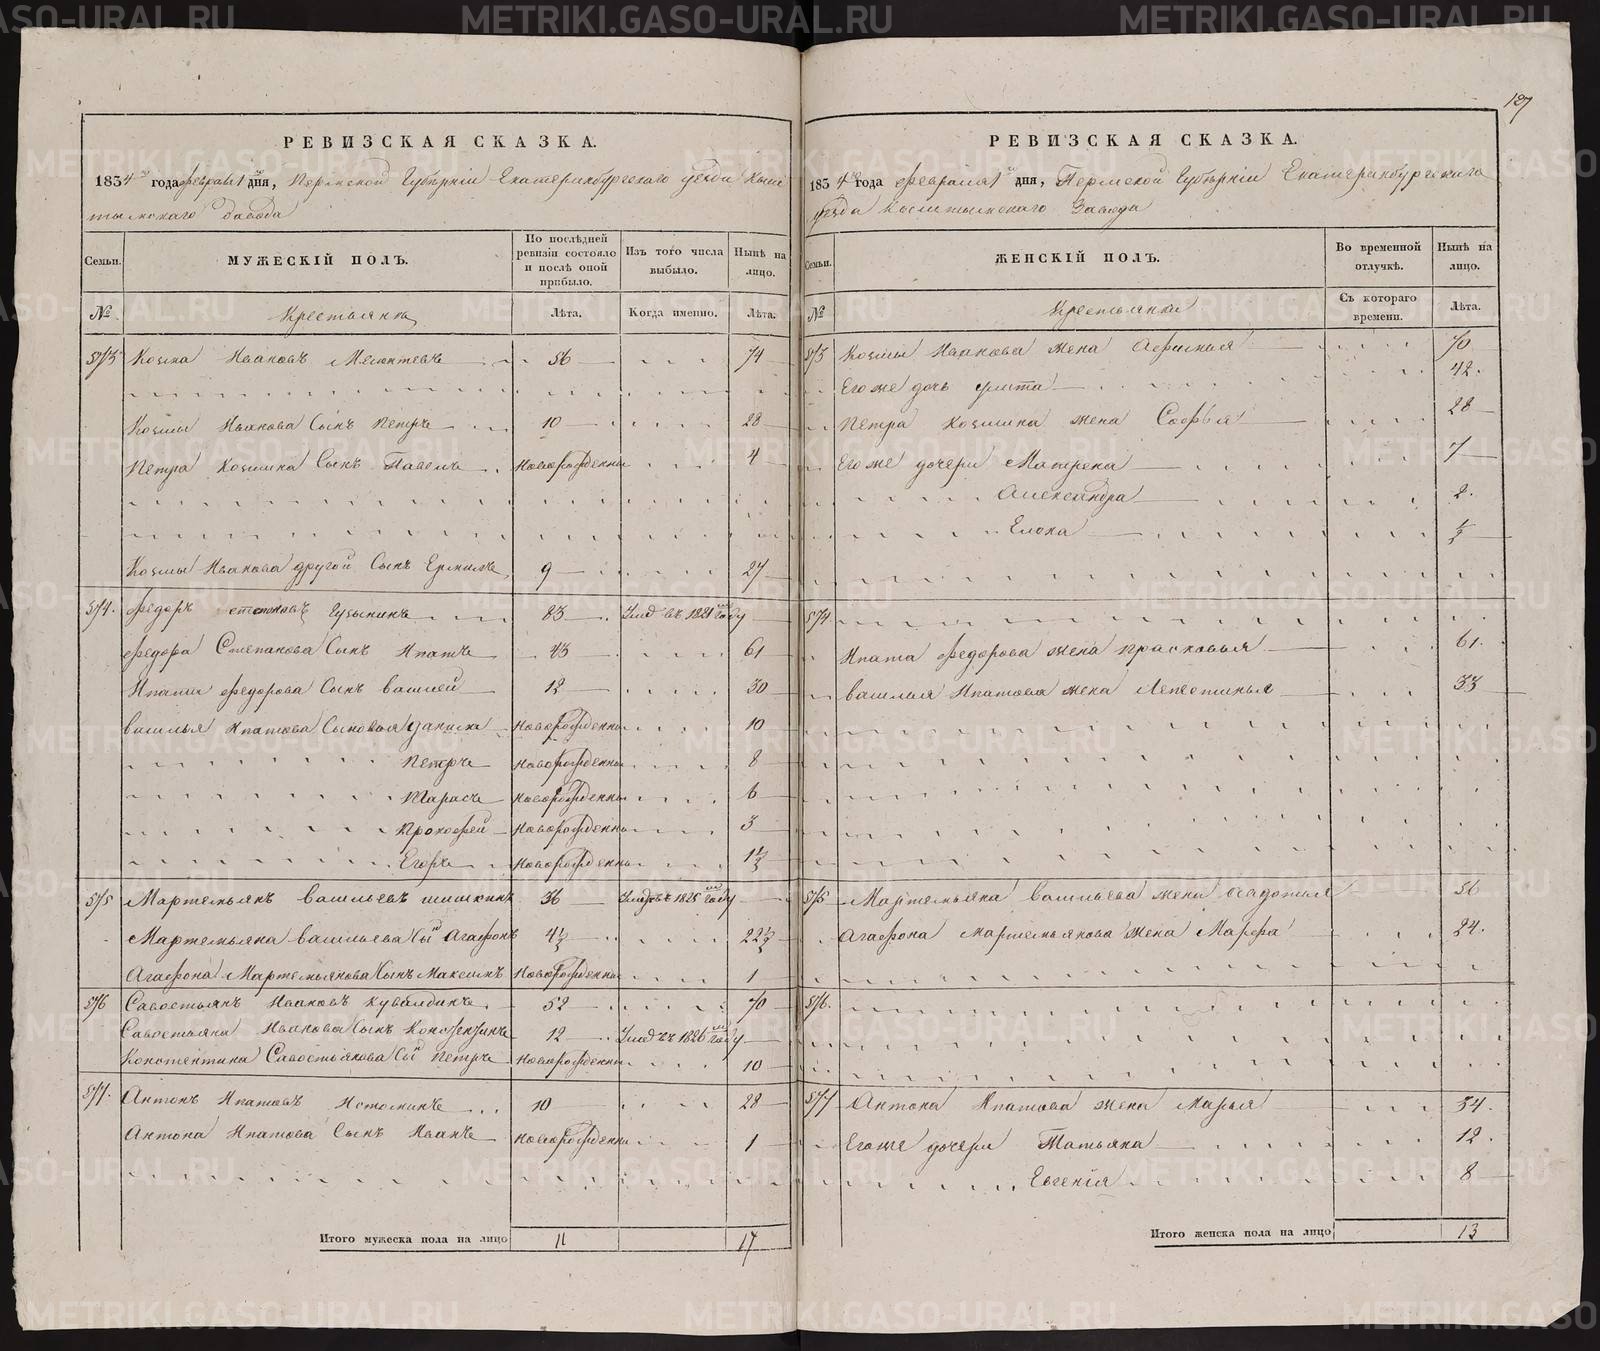 127
РЕВИЗСКАЯ СКАЗКА.
1834го года февраля 1 дня, Пермской Губерніи Екатеринбургскаго уезда Кыш
тымскаго Завода
Семьи.
МУЖЕСКІЙ ПОЛЪ.
По послѣдней ревизіи состояло и послѣ оной прибыло.
Изъ того числа выбыло.
Нынѣ на лицо.
№
Крестьяня
Лѣта.
Когда именно.
Лѣта.
573 Козма Ивановъ 56 74
Козмы Иванова Сынъ Петръ 10 28
Петра Козмина Сынъ Павелъ Новорожденны 4
Козмы Иванова другой Сынъ 9 27
574. Федоръ Степановъ 83 Умре въ 1821м году
Федора Степанова Сынъ Ипатъ 43 61
Ипата Федорова Сынъ Василей 12 30
Василья Ипатова Сыновья Данила Новорожденны 10
Петръ Новорожденны 8
Тарасъ Новорожденны 6
Прокофей Новорожденны 3
Егоръ Новорожденны 1½
575 Мартемьянъ Васильевъ Шишкинъ 36 1825м году
Мартемьяна Васильева Сынъ Агафонъ 4½ 22½
Агафона Мартемьянова Сынъ Максимъ Новорожденны 1
576 Савостьянъ Ивановъ Кувалдинъ 52 70
Савостьяна Иванова Сынъ 12 1826м году
Констентина Савостьянова Сы Петръ Новорожденны 10
577. Антонъ Ипатовъ Истоминъ 10 28
Антона Ипатова Сынъ Иванъ Новорожденны 1
Итого мужеска пола на лицо 11 17
РЕВИЗСКАЯ СКАЗКА.
1834го года февраля 1го дня, Пермской Губерніи Екатеринбургскаго
уезда Кыштымскаго Завода
Семьи.
ЖЕНСКІЙ ПОЛЪ.
Во временной отлучкѣ.
Нынѣ на лицо.
№
Крестьянки
Съ котораго времени.
Лѣта.
573 Козмы Иванова жена 70
Его же дочь Улита 42.
Петра Козмина жена Софья 28
Его же дочери Матрена 7
Александра 2.
Елена ½
574
Ипата Федорова жена Прасковья 61.
Василья Ипатова жена 33
575 Мартемьяна Васильева жена 56
Агафона Мартемьянова жена Марфа 24.
576.
577 Антона Ипатова жена Марья 34.
Его же дочери Татьяна 12.
Евгенія 8
Итого женска пола на лицо 13
METRIKI.GASO-URAL.RU